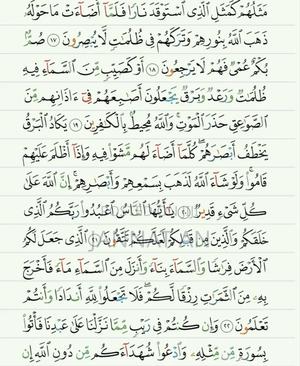 مَثَلُهُمْ كَمَثَلِ الَّذِى اسْتَوْقَدَ نَارًا فَلَمَّآ أَضَآءَتْ مَا حَوْلَهُۥ
ذَهَبَ اللَّهُ بِنُورِهِمْ وَتَرَكَهُمْ فِى ظُلُمَٰتٍ لَّا يُبْصِرُونَ ١٧ صُمٌّۢ
بُكْمٌ عُمْىٌ فَهُمْ لَا يَرْجِعُونَ ١٨ أَوْ كَصَيِّبٍ مِّنَ السَّمَآءِ فِيهِ
ظُلُمَٰتٌ وَرَعْدٌ وَبَرْقٌ يَجْعَلُونَ أَصَٰبِعَهُمْ فِىٓ ءَاذَانِهِم مِّنَ
الصَّوَٰعِقِ حَذَرَ الْمَوْتِ ۚ وَاللَّهُ مُحِيطٌۢ بِالْكَٰفِرِينَ ١٩ يَكَادُ الْبَرْقُ
يَخْطَفُ أَبْصَٰرَهُمْ ۖ كُلَّمَآ أَضَآءَ لَهُم مَّشَوْا۟ فِيهِ وَإِذَآ أَظْلَمَ عَلَيْهِمْ
قَامُوا۟ ۚ وَلَوْ شَآءَ اللَّهُ لَذَهَبَ بِسَمْعِهِمْ وَأَبْصَٰرِهِمْ ۚ إِنَّ اللَّهَ عَلَىٰ
كُلِّ شَىْءٍ قَدِيرٌ ٢٠ يَٰٓأَيُّهَا النَّاسُ اعْبُدُوا۟ رَبَّكُمُ الَّذِى
خَلَقَكُمْ وَالَّذِينَ مِن قَبْلِكُمْ لَعَلَّكُمْ تَتَّقُونَ ٢١ الَّذِى جَعَلَ لَكُمُ
الْأَرْضَ فِرَٰشًا وَالسَّمَآءَ بِنَآءً وَأَنزَلَ مِنَ السَّمَآءِ مَآءً فَأَخْرَجَ
بِهِۦ مِنَ الثَّمَرَٰتِ رِزْقًا لَّكُمْ ۖ فَلَا تَجْعَلُوا۟ لِلَّهِ أَندَادًا وَأَنتُمْ
تَعْلَمُونَ ٢٢ وَإِن كُنتُمْ فِى رَيْبٍ مِّمَّا نَزَّلْنَا عَلَىٰ عَبْدِنَا فَأْتُوا۟
بِسُورَةٍ مِّن مِّثْلِهِۦ وَادْعُوا۟ شُهَدَآءَكُم مِّن دُونِ اللَّهِ إِن